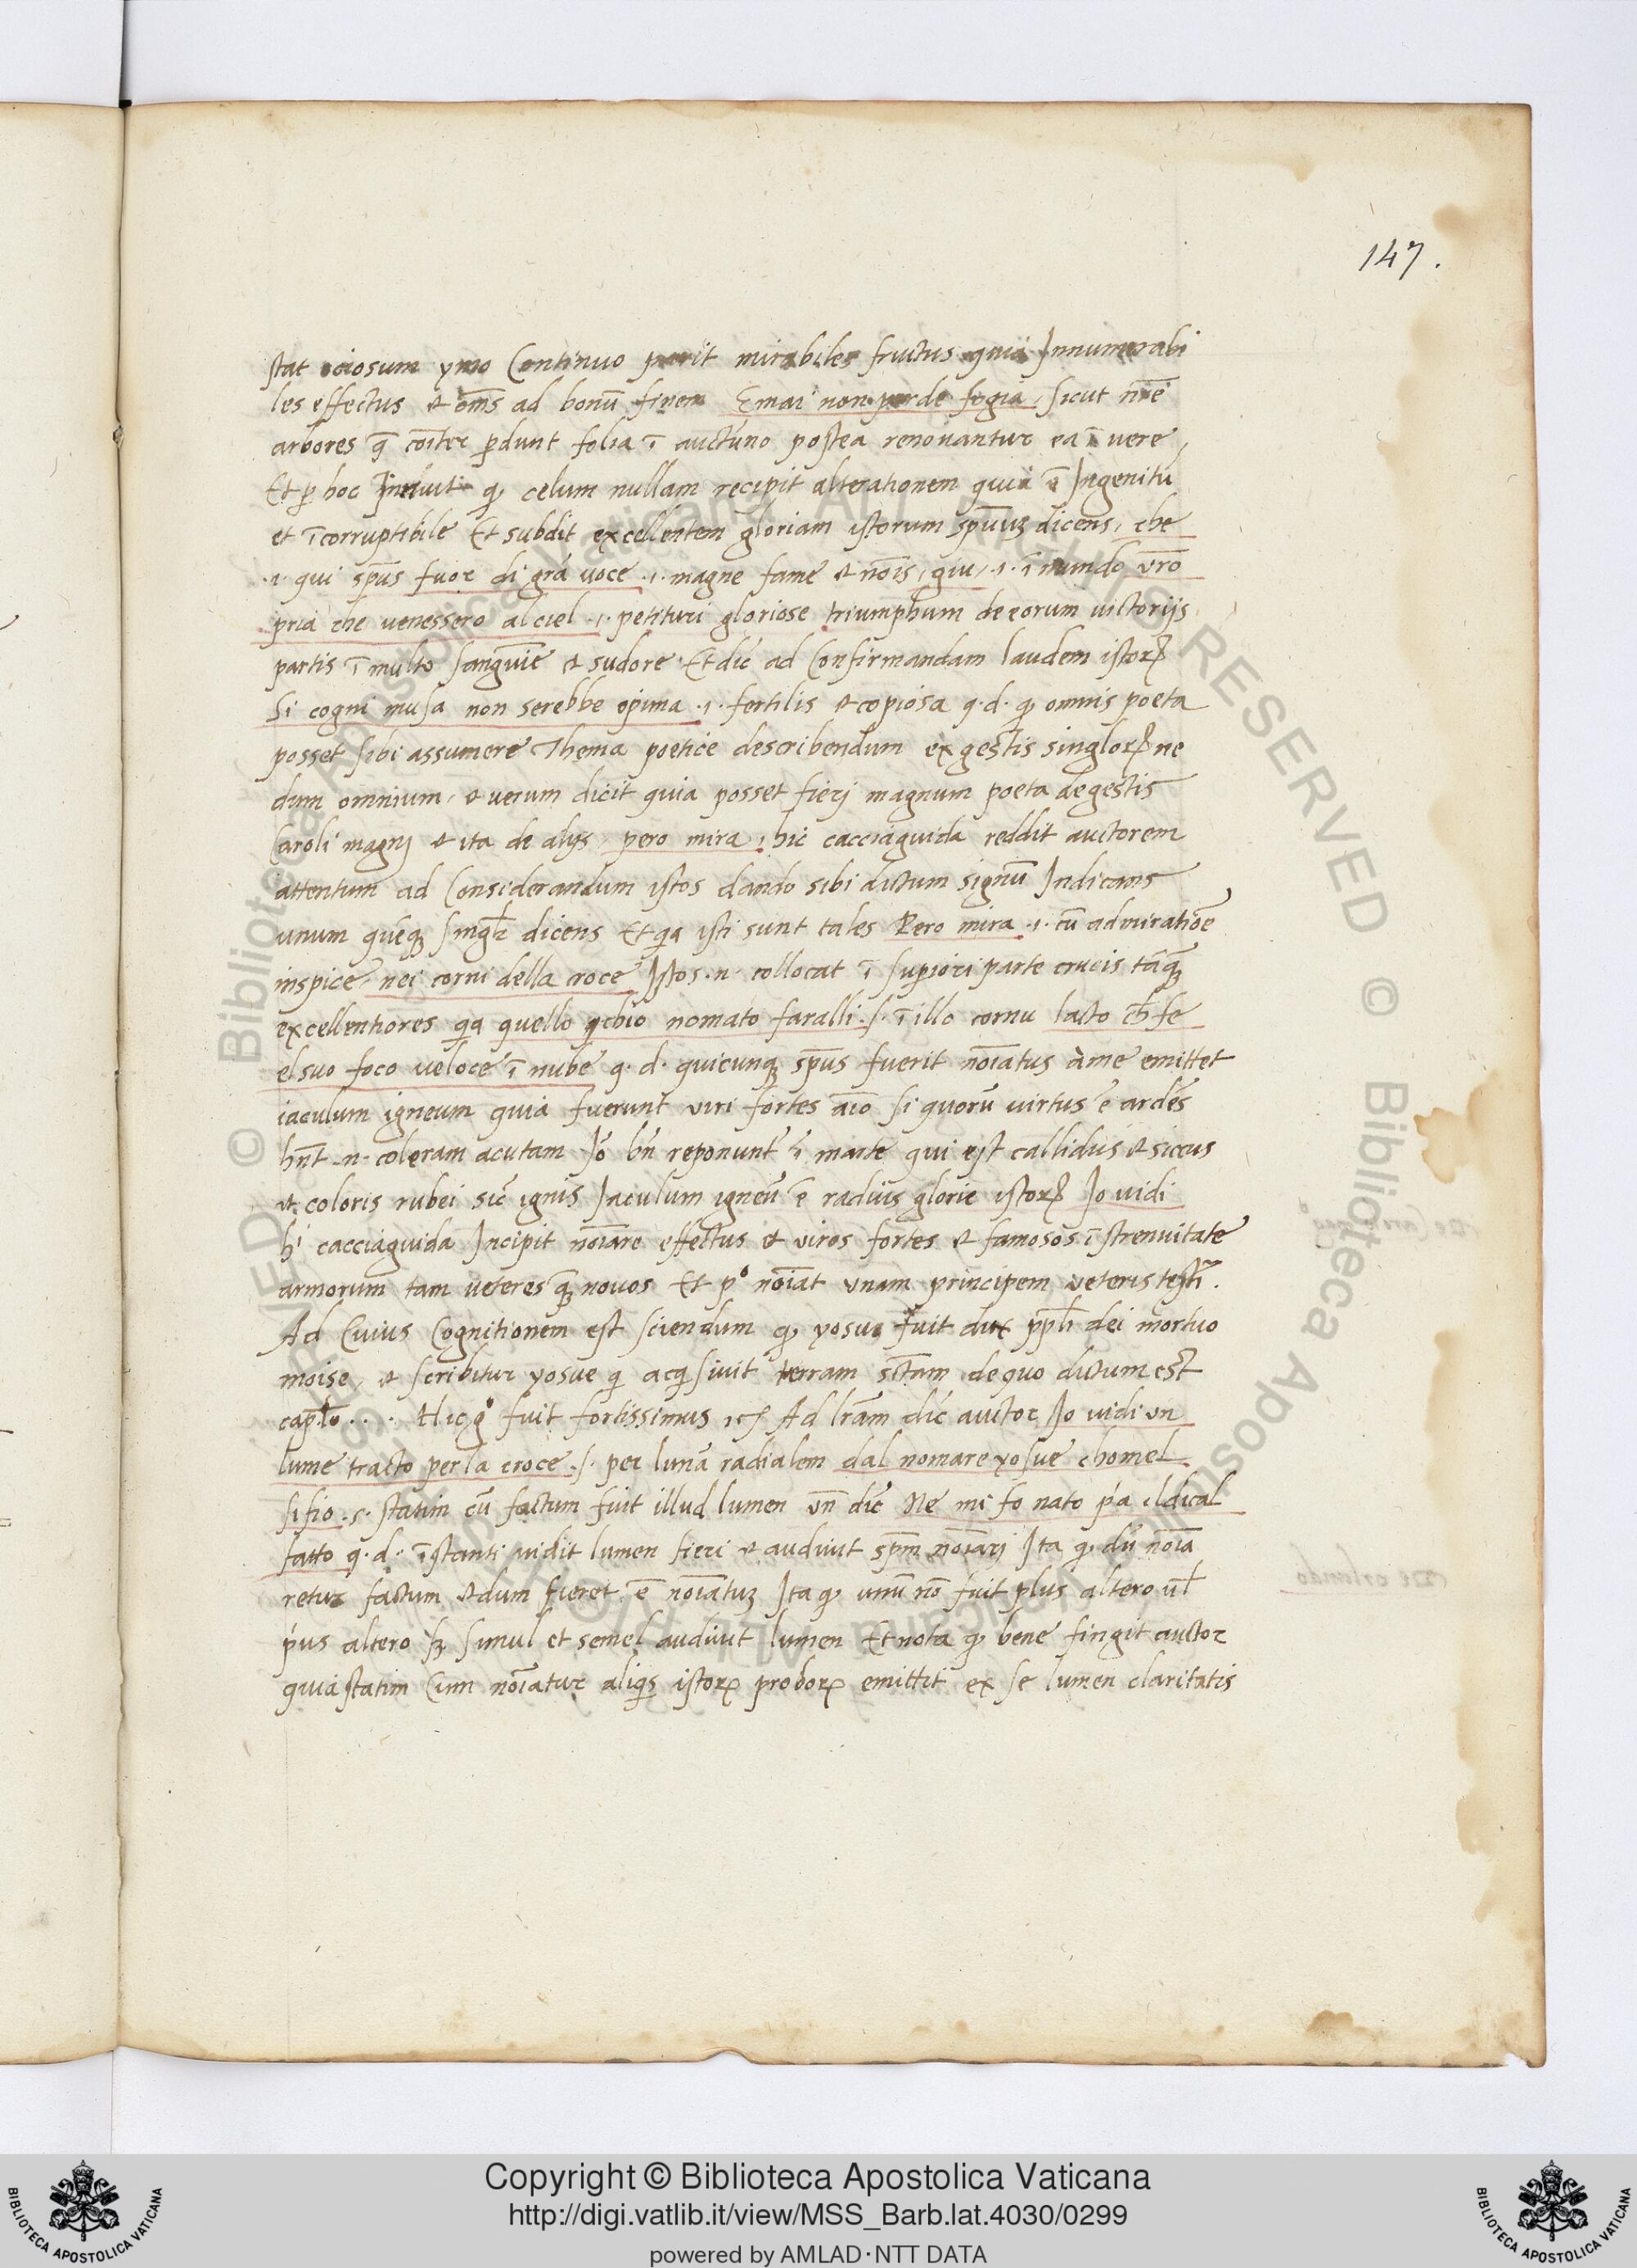 147.
stat ociosum ymo Continuo parit mirabiles fructus quia Innumerabi
les effectus et oms̄ ad bonū finem Emai non perde fogia, sicut nr̄e
arbores q̄ cōiter ꝑdunt folia ī auctūno postea renovantur ea ī vere,
Et ꝑ hoc Innuit ꝙ celum nullam recipit alterationem quia ē Ingenitū
et īcorruptibile Et subdit excellentem gloriam istorum spūuꝫ dicens, che
.i. qui spūs fuor di grā voce .i. magne fame et nōis, giu, .i. ī mundo vr̄o
pria che venessero al ciel .i. petituri gloriose triumphum de eorum victorijs
partis ī multo sanguīe et sudore Et dic̄ ad Confirmandam laudem istorꝝ
Si cogni musa non serebbe opima .i. fertilis et copiosa q.d. ꝙ omnis poeta
posset sibi assumere Thema poetice describendum ex gestis singlorꝝ ne
dum omnium, et verum dicit quia posset fieri magnum poeta de gestis
Caroli magnj et ita de alijs pero mira, hic cacciaguida reddit auctorem
attentum ad Considerandum istos dando sibi dictum signū Indicans
unum quēqꝫ dicens Et qia isti sunt tales Pero mira .i. cū admiratiōe
inspice, nei corni della croce Istos .n. collocat ī supiori parte crucis tāqꝫ
excellentiores qia quello qchio nomato faralli .s. ī illo cornu lacto ch̄ fe
el suo foco veloce ī nube q.d. quicunqꝫ spūs fuerit nōiatus ame emittet
iaculum igneum quia fuerunt viri fortes aīo si quorū virtus ē ardēs
hn̄t .n. coleram acutam Iō bn̄ reponunt ī marte qui est callidus et siccus
et coloris rubei sic̄ ignis Iaculum ignēu ē radius glorie istorꝝ Io vidi
hi cacciaguida Incipit nōiare effectus et viros fortes et famosos ī strenuitate
armorum tam veteres qꝫ novos Et pº nōiat unam principem veteris testi.
Ad Cuius Cognitionem est sciendum ꝙ yosue fuit dux ppl̄i dei mortuo
moise, et scribitur yosue qi acqisivit terram sctam de quo dictum est
capl̄o . . . Hic gº fuit fortissimus Ad lr̄am dic̄ auctor Io vidi un
lume tracto per la croce .s. per lunā radialem dal nomare yosue chomel
si fio .s. statim cū factum fuit illud lumen vn̄ dic̄ Ne mi fo nato pa ildical
fatto q.d. īstanti vidit lumen fieri et audivit spm̄ nōiarj Ita ꝙ dū nōia
retur factum et dum fieret ē nōiatuꝫ Ita ꝙ unū nō fuit plus altero vl̄
pus altero sꝫ simul et semel audivit lumen Et nota ꝙ bene fingit auctor
quia statim Cum nōiatur aliqis istorꝝ proborꝝ emittit ex se lumen claritatis
Copyright © Biblioteca Apostolica Vaticana
http://digi.vatlib.it/view/MSS_Barb.lat.4030/0299
powered by AMLAD·NTT DATA
BIBLIOTECA APOSTOLICA VATICANA
BIBLIOTECA APOSTOLICA VATICANA